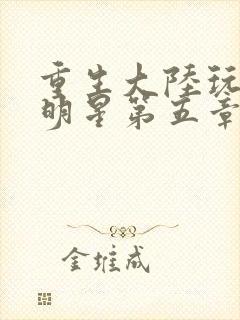 重生大陸玩
明星第五章
金维成